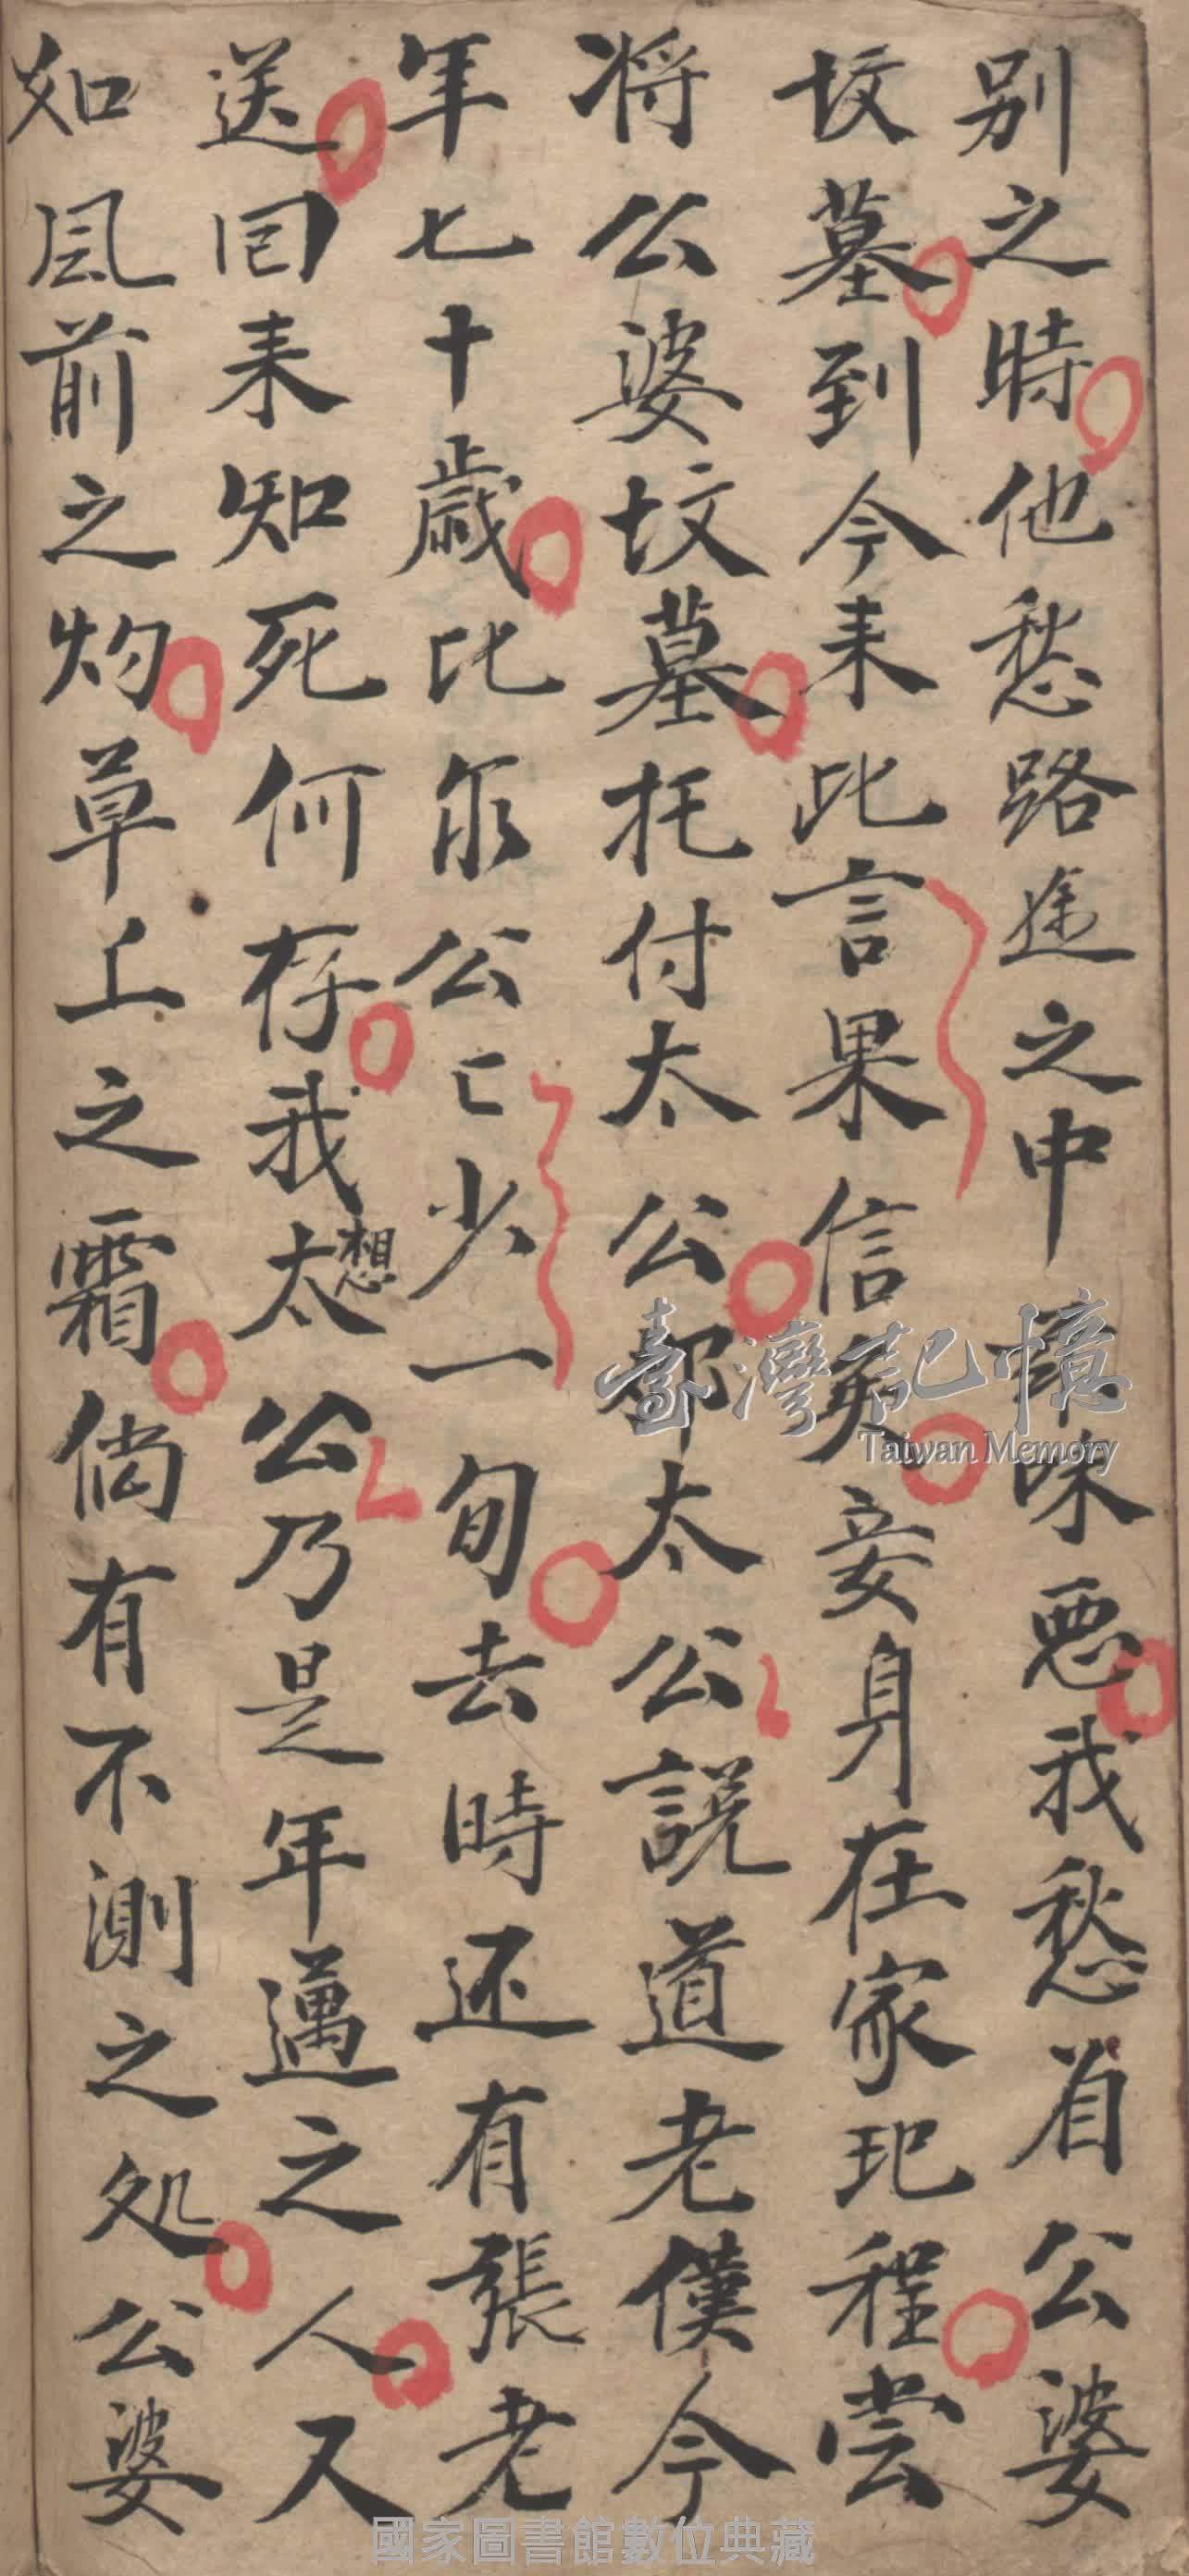 别之時他愁路途之中味惡我愁省公婆
坟墓到今来此言果信矣妾身在家起程尝
将公婆坟墓托付太公那太公説道老僕今
年七十歳比尔公亡少一旬去時还有張老
送回来知死何存我想太公乃是年邁之人又
如風前之灼草上之霜倘有不測之处公婆
臺灣記憶
Taiwan Memory
國家圖書館數位典藏